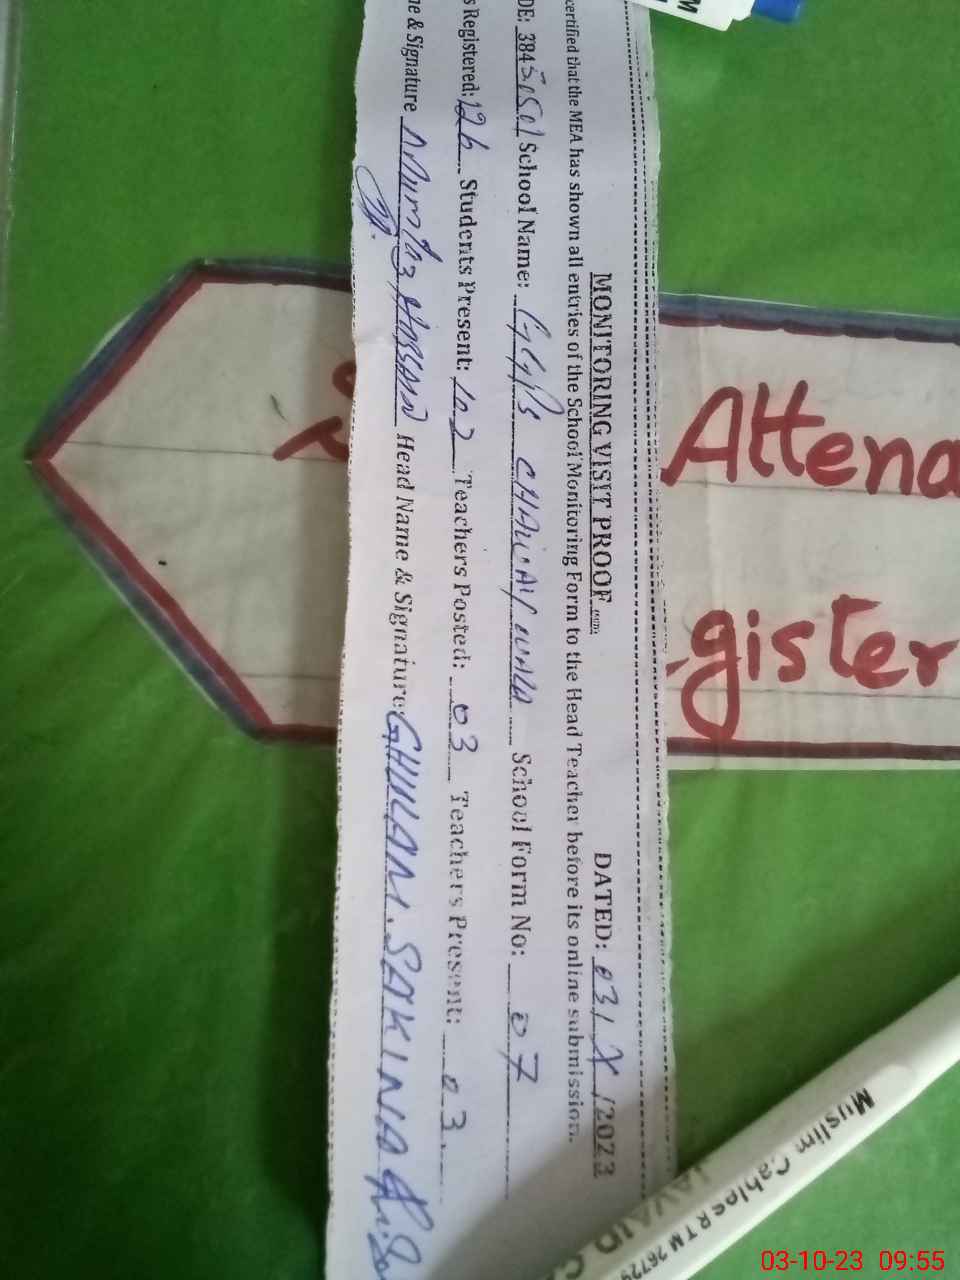 MONITORING VISIT PROOF DATED: 03/X/2023
certified that the MEA has shown all entries of the School Monitoring Form to the Head Teacher before its online submission.
DE: 38450501 School Name: CHAH.AY WALA School Form No: 07
s Registered: 126 Students Present: 102 Teachers Posted: 03 Teachers Present: 03
ne & Signature Mumtaz Hassan Head Name & Signature: GHULAM. SAKINA
Attena
gister
Muslim Cables RTM 26729
JAVAID C
M
03-10-23 09:55